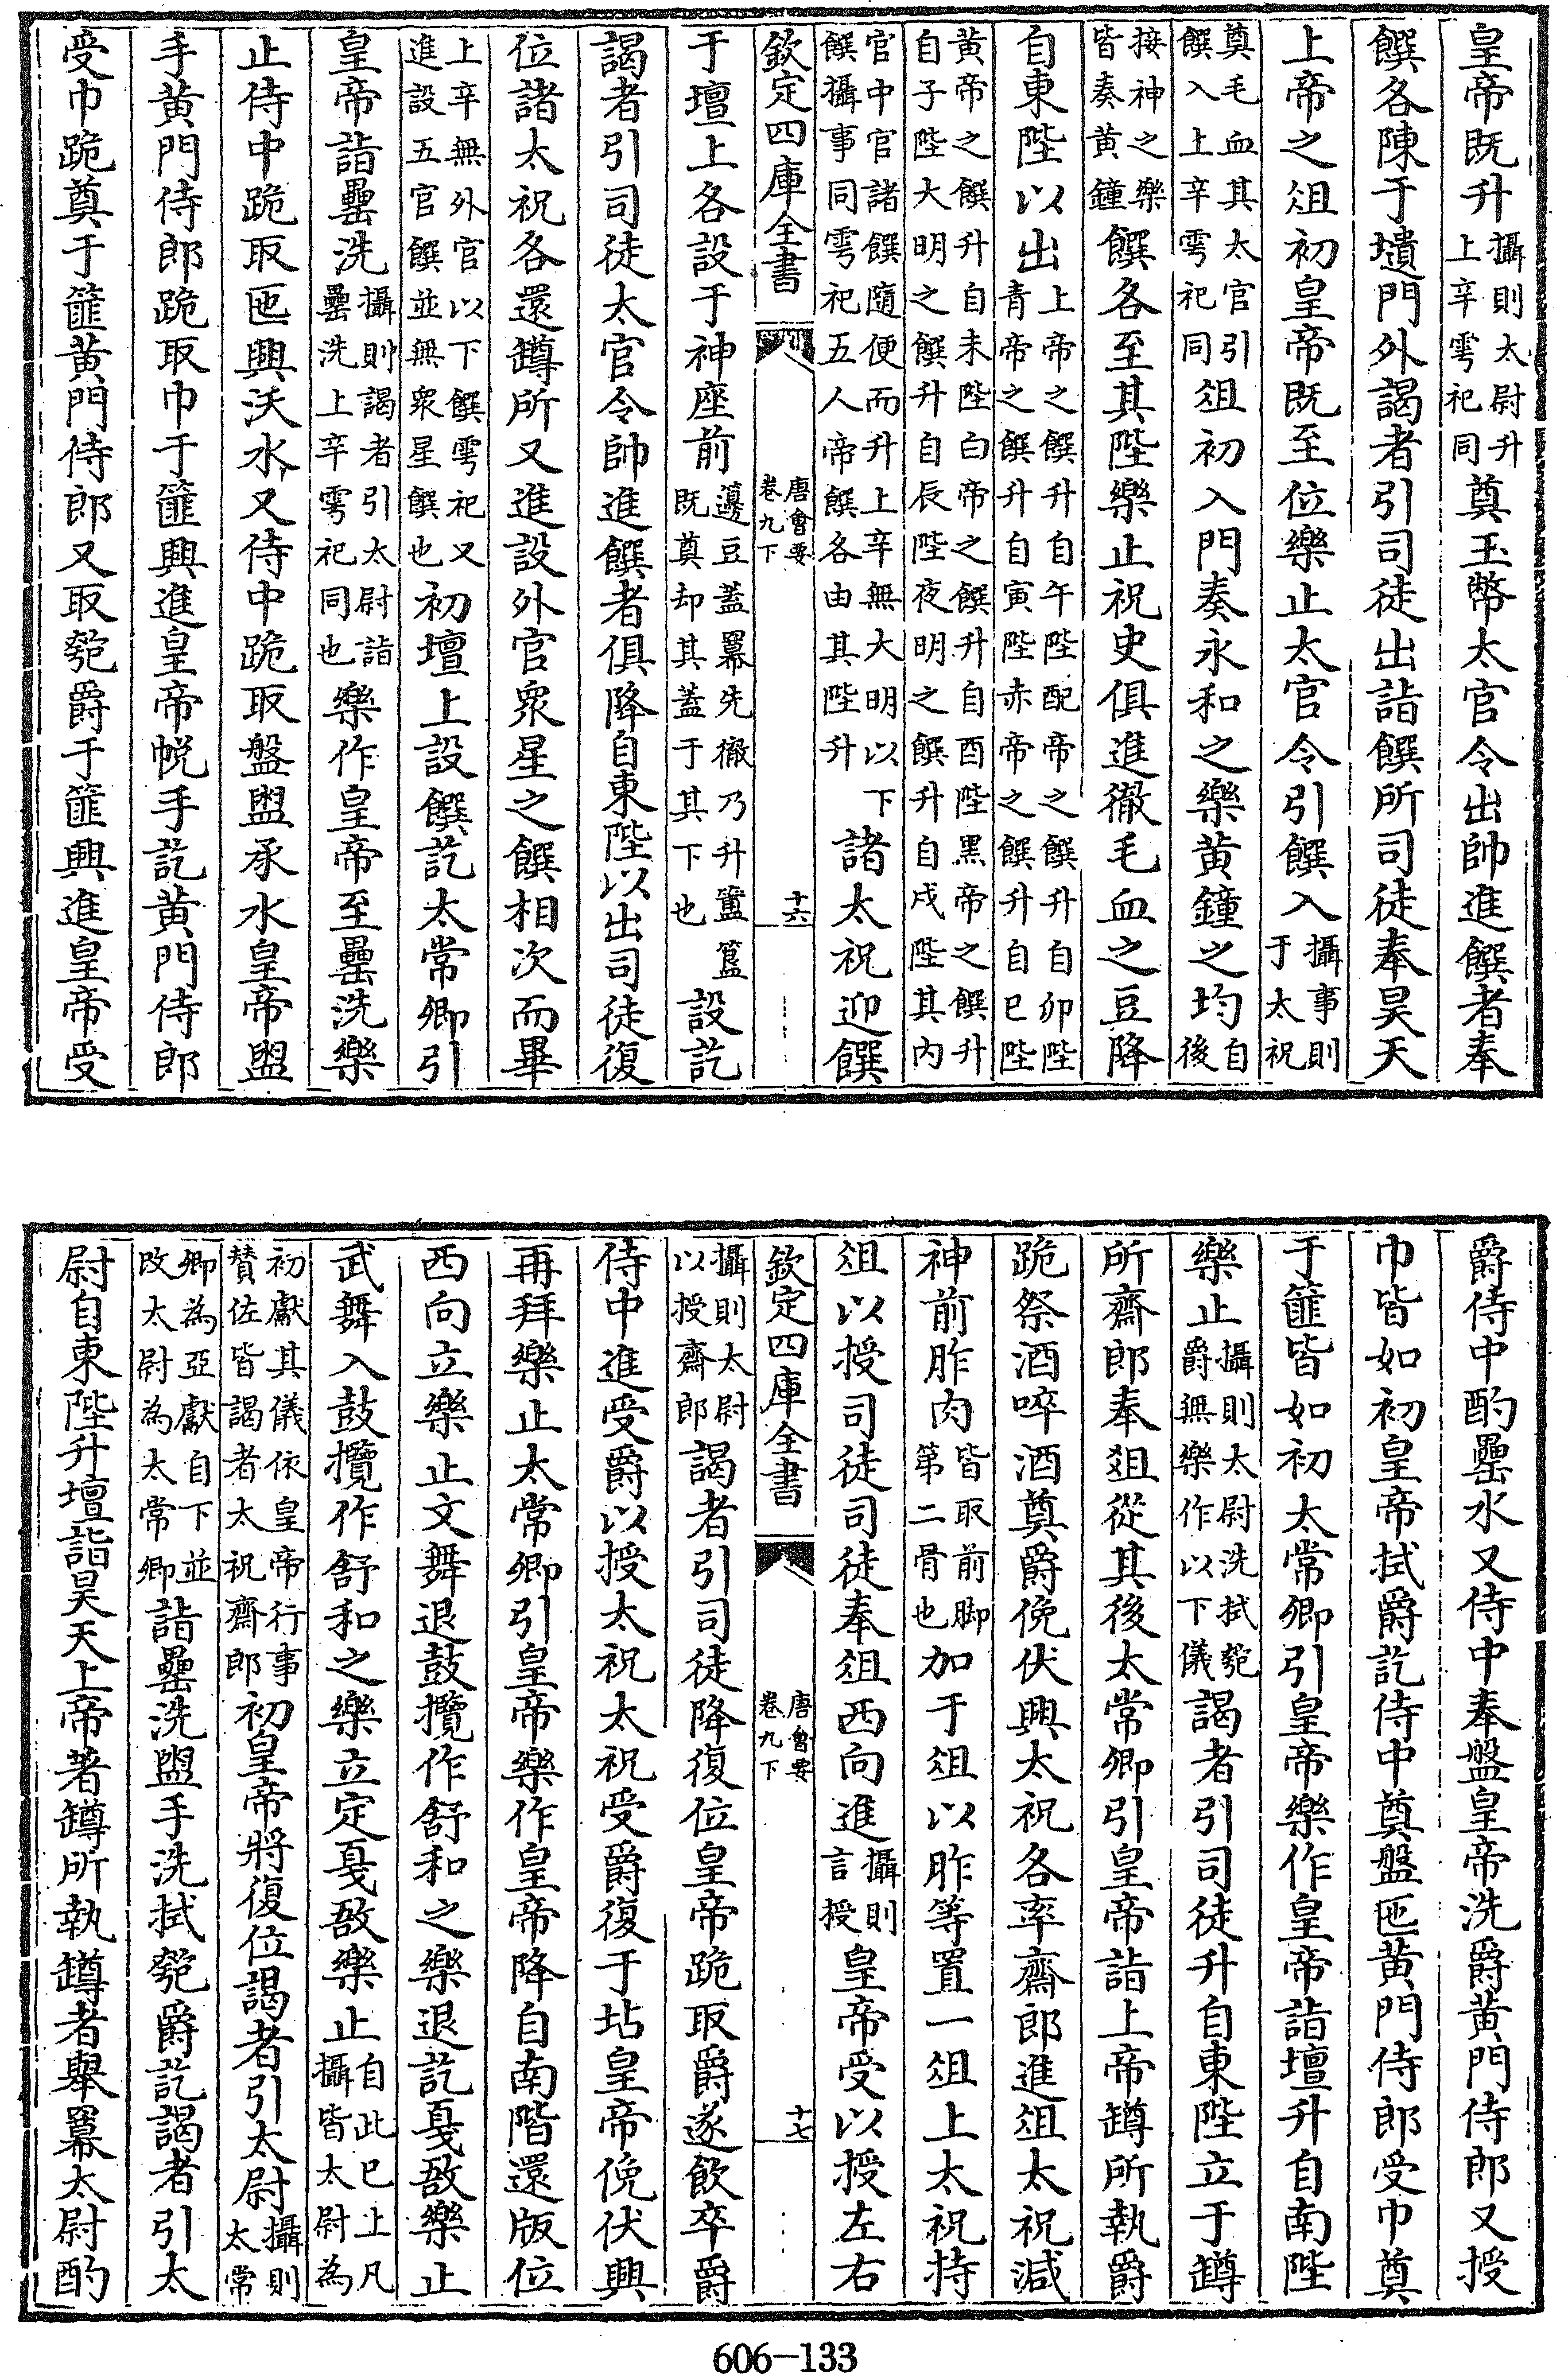 皇帝既升攝則太尉升上辛雩祀同奠玉幣太官令出帥進饌者奉
饌各陳于壝門外謁者引司徒出詣饌所司徒奉昊天
上帝之俎初皇帝既至位樂止太官令引饌入攝事則于太祝
奠毛血其太官引饌入上辛雩祀同俎初入門奏永和之樂黃鐘之均自後
接神之樂皆奏黃鐘饌各至其陛樂止祝史俱進徹毛血之豆降
自東陛以出上帝之饌升自午陛配帝之饌升自卯陛青帝之饌升自寅陛赤帝之饌升自巳陛
黃帝之饌升自未陛白帝之饌升自酉陛黑帝之饌升自子陛大明之饌升自辰陛夜明之饌升自戌陛其內
官中官諸饌隨便而升上辛無大明以下饌攝事同雩祀五人帝饌各由其陛升諸太祝迎饌
欽定四庫全書 唐會要卷九下 十六
于壇上各設于神座前籩豆蓋羃先徹乃升簠簋既奠却其蓋于其下也設訖
謁者引司徒太官令帥進饌者俱降自東陛以出司徒復
位諸太祝各還罇所又進設外官眾星之饌相次而畢
上辛無外官以下饌雩祀又進設五官饌並無眾星饌也初壇上設饌訖太常卿引
皇帝詣罍洗攝則謁者引太尉詣罍洗上辛雩祀同也樂作皇帝至罍洗樂
止侍中跪取匜興沃水又侍中跪取盤盥承水皇帝盥
手黃門侍郎跪取巾于篚興進皇帝帨手訖黃門侍郎
受巾跪奠于篚黃門侍郎又取匏爵于篚興進皇帝受
爵侍中酌罍水又侍中奉盤皇帝洗爵黃門侍郎又授
巾皆如初皇帝拭爵訖侍中奠盤匜黃門侍郎受巾奠
于篚皆如初太常卿引皇帝樂作皇帝詣壇升自南陛
樂止攝則太尉洗拭匏爵無樂作以下儀謁者引司徒升自東陛立于罇
所齋郎奉俎從其後太常卿引皇帝詣上帝罇所執爵
跪祭酒啐酒奠爵俛伏興太祝各率齋郎進俎太祝減
神前胙肉皆取前脚第二骨也加于俎以胙等置一俎上太祝持
俎以授司徒司徒奉俎西向進攝則言授皇帝受以授左右
欽定四庫全書 唐會要卷九下 十七
攝則太尉以授齋郎謁者引司徒降復位皇帝跪取爵遂飲卒爵
侍中進受爵以授太祝太祝受爵復于坫皇帝俛伏興
再拜樂止太常卿引皇帝樂作皇帝降自南階還版位
西向立樂止文舞退鼓攬作舒和之樂退訖戛敔樂止
武舞入鼓攬作舒和之樂立定戛敔樂止自此已上凡攝皆太尉為
初獻其儀依皇帝行事贊佐皆謁者太祝齋郎初皇帝將復位謁者引太尉攝則太常
卿為亞獻自下並改太尉為太常卿詣罍洗盥手洗拭匏爵訖謁者引太
尉自東陛升壇詣昊天上帝著罇所執罇者舉羃太尉酌
606—133